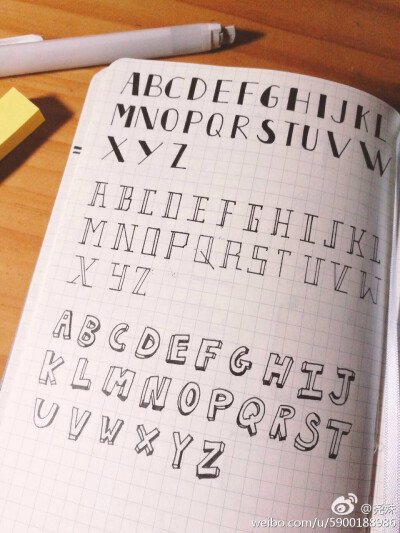 ABCDEFGHIJKL
MNOPQRSTUVW
= XYZ
ABCDEFGHIJKL
MNOPQRSTUVW
XYZ
ABCDEFGHIJ
KLMNOPQRST
UVWXYZ
weibo.com/u/5900188986